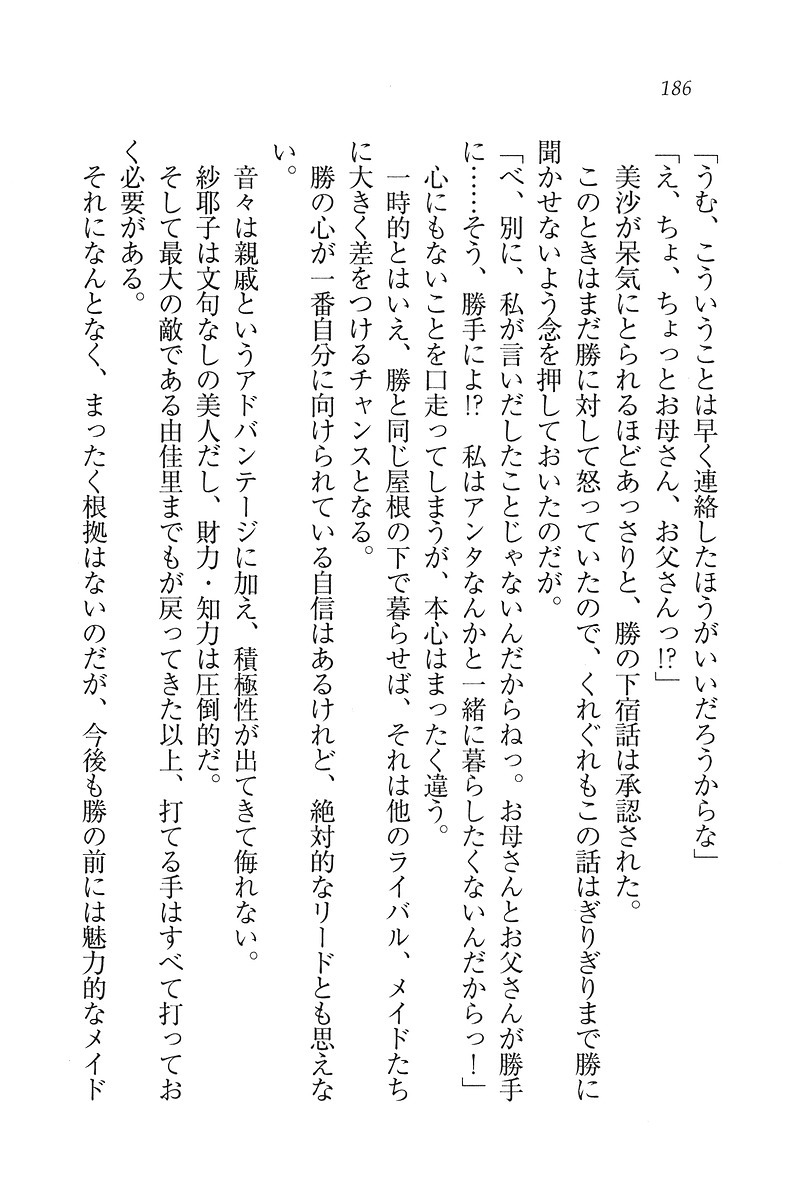 186
「うむ、こういうことは早く連絡したほうがいいだろうからな」
「え、ちょ、ちょっとお母さん、お父さんっ!?」
　美沙が呆気にとられるほどあっさりと、勝の下宿話は承認された。
　このときはまだ勝に対して怒っていたので、くれぐれもこの話はぎりぎりまで勝に
聞かせないよう念を押しておいたのだが。
「べ、別に、私が言いだしたことじゃないんだからねっ。お母さんとお父さんが勝手
に……そう、勝手によ!?　私はアンタなんかと一緒に暮らしたくないんだからっ！」
　心にもないことを口走ってしまうが、本心はまったく違う。
　一時的とはいえ、勝と同じ屋根の下で暮らせば、それは他のライバル、メイドたち
に大きく差をつけるチャンスとなる。
　勝の心が一番自分に向けられている自信はあるけれど、絶対的なリードとも思えな
い。
　音々は親戚というアドバンテージに加え、積極性が出てきて侮れない。
　紗耶子は文句なしの美人だし、財力・知力は圧倒的だ。
　そして最大の敵である由佳里までもが戻ってきた以上、打てる手はすべて打ってお
く必要がある。
　それになんとなく、まったく根拠はないのだが、今後も勝の前には魅力的なメイド